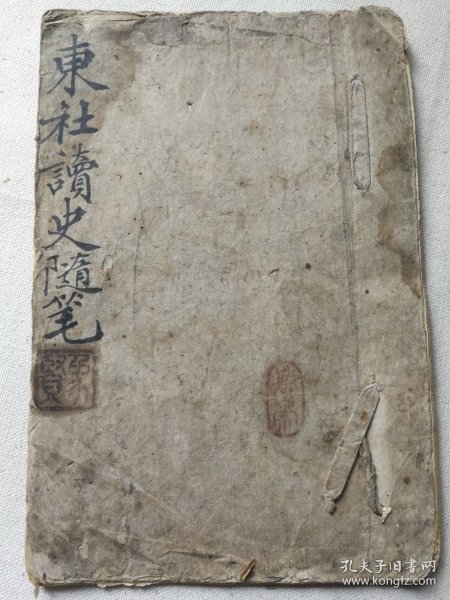 東社讀史隨笔
孔夫子旧书网
www.kongfz.com